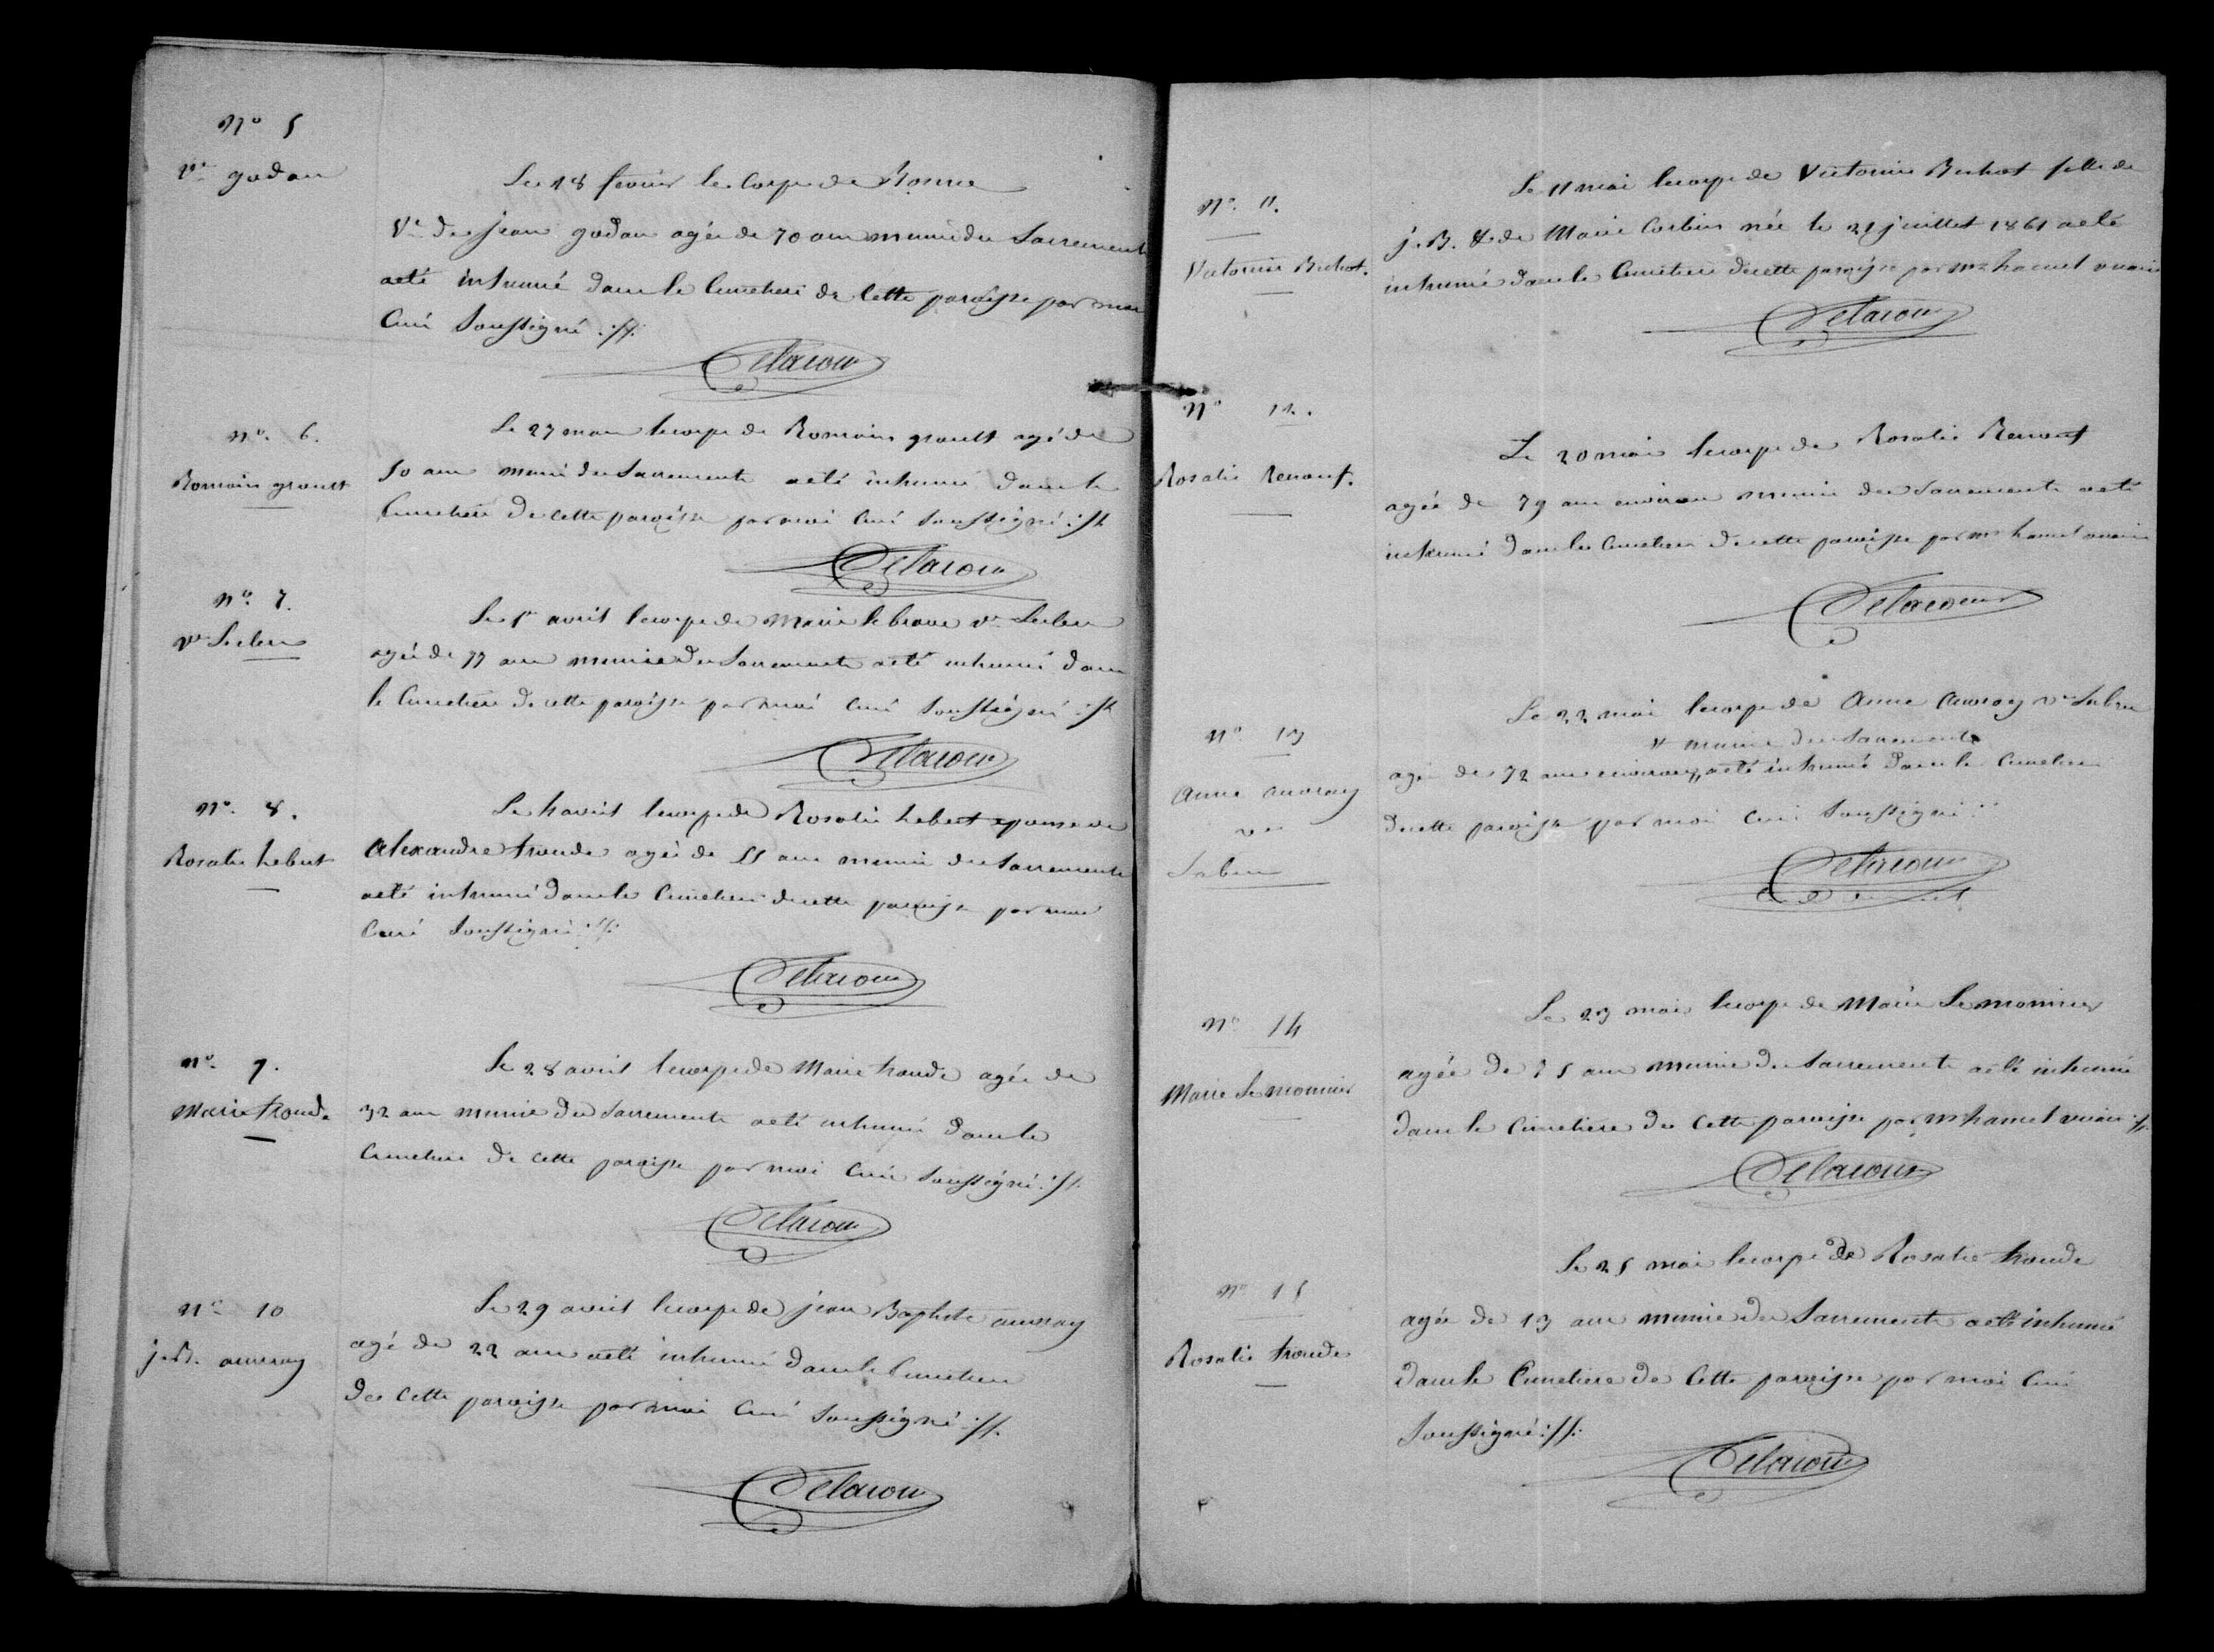 N° 5
Ve godan
Le 18 fevrier le Corps de
Ve de jean godan agée de 70 ans munie des Sacrements
a eté inhumé dans le Cimetiere de Cette paroisse par moi
Curé Soussigné ://:
Delacour
N° 6.
Romain groult
Le 27 mars le corps de Romain groult agé de
50 ans muni des Sacrements a eté inhumé dans le
Cimetiere de cette paroisse par moi Curé Soussigné ://
Delacour
N° 7.
Ve
Le 1er avril le corps de Marie lebrave Ve
agée de 77 ans munie des Sacrements a eté inhumé dans
le Cimetiere de cette paroisse par moi Curé Soussigné ://
Delacour
N° 8.
Rosalie hebert
Le 4 avril le corps de Rosalie hebert epouse de
Alexandre troude agée de 55 ans munie des Sacrements
a eté inhumé dans le Cimetiere de cette paroisse par moi
Curé Soussigné ://:
Delacour
N° 9.
Marie troude
Le 28 avril le corps de Marie troude agée de
32 ans munie des Sacrements a eté inhumé dans le
Cimetiere de cette paroisse par moi Curé Soussigné ://
Delacour
N° 10
j. B. auvray
Le 29 avril le corps de jean Baptiste auvray
agé de 22 ans a eté inhumé dans le Cimetiere
de Cette paroisse par moi Curé Soussigné ://.
Delacour
N° 11.
Victorine Bichot.
Le 11 mai le corps de Victorine Bichot fille de
j. B. & de Marie Corbin née le 21 juillet 1861 a eté
inhumé dans le Cimetiere de cette paroisse par mr hamel vicaire
Delacour
N° 12.
Rosalie Renouf.
Le 20 mai le corps de Rosalie Renouf
agée de 79 ans environ munie des Sacrements a eté
inhumé dans le Cimetiere de cette paroisse par mr hamel vicaire
Delacour
N° 13
Anne auvray
ve
Le 22 mai le corps de Anne Auvray ve
munie des Sacrements
agée de 72 ans environ, a eté inhumé dans le Cimetiere
de cette paroisse par moi Curé Soussigné
Delacour
N° 14
Marie Lemonnier
Le 23 mai le corps de Marie Lemonnier
agée de 75 ans munie des Sacrements a eté inhumé
dans le Cimetiere de Cette paroisse par mr hamel vicaire ://.
Delacour
N° 15
Rosalie troude
Le 25 mai le corps de Rosalie troude
agée de 13 ans munie des Sacrements a eté inhumé
dans le Cimetiere de Cette paroisse par moi Curé
Soussigné ://:
Delacour